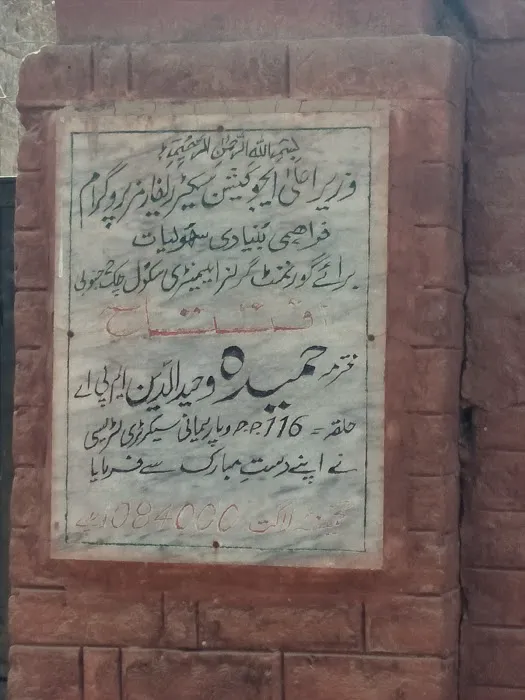 بسم اللہ الرحمٰن الرحیم
وزیر اعلیٰ ایجوکیشن سیکٹر ریفارمز پروگرام
فراہمی بنیادی سہولیات
برائے گورنمنٹ گرلز ایلیمنٹری سکول چک جنوبی
افتتاح
محترمہ حمیدہ وحیدالدین ایم پی اے
حلقہ = P.P.116 و پارلیمانی سیکرٹری لٹریسی
نے اپنے دستِ مبارک سے فرمایا
لاگت 1084000